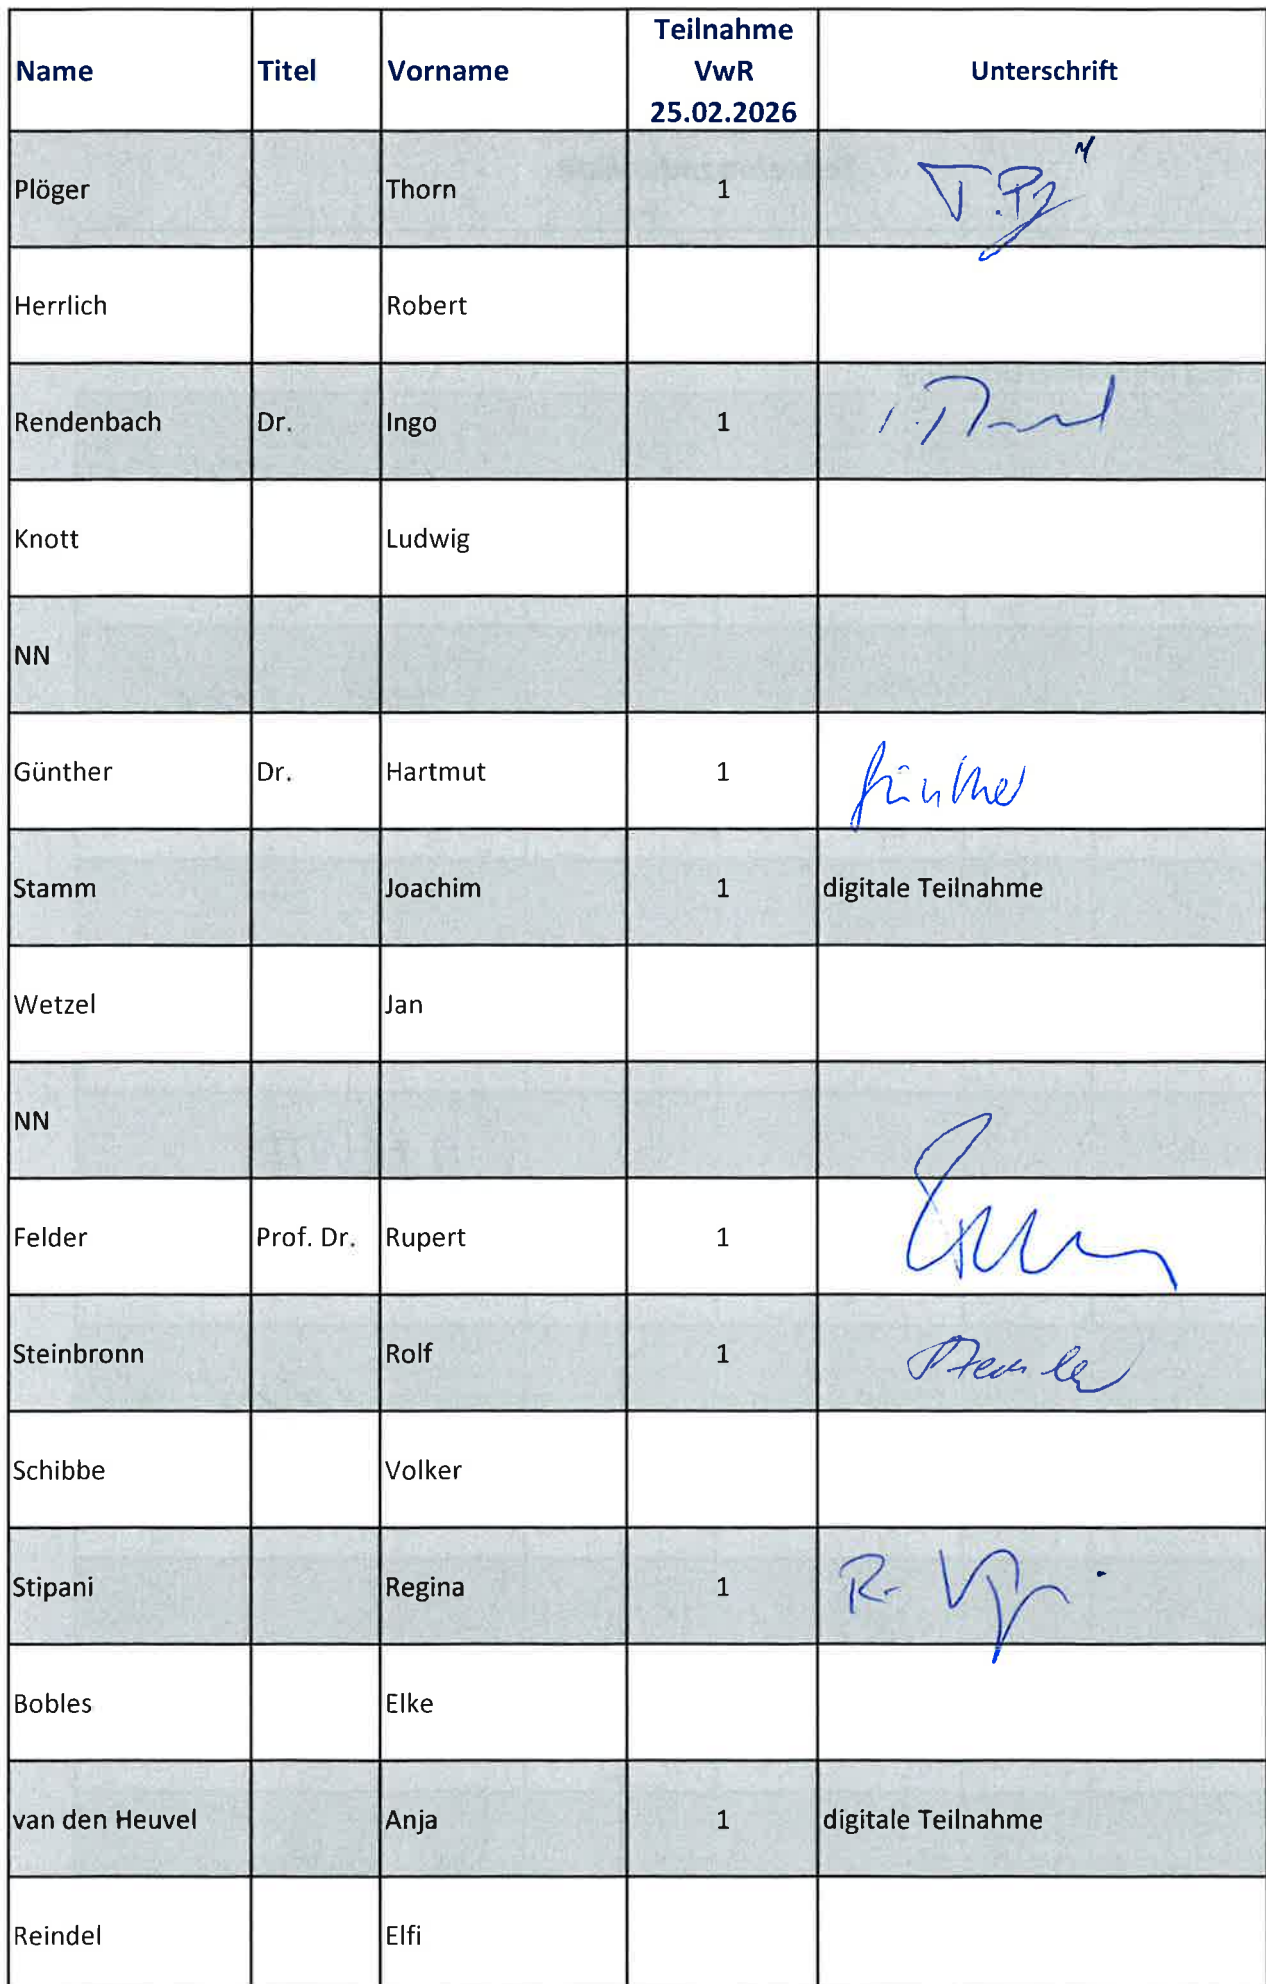 Name Titel Vorname Teilnahme VwR 25.02.2026 Unterschrift
Plöger Thorn 1
Herrlich Robert
Rendenbach Dr. Ingo 1
Knott Ludwig
NN
Günther Dr. Hartmut 1 Günther
Stamm Joachim 1 digitale Teilnahme
Wetzel Jan
NN
Felder Prof. Dr. Rupert 1
Steinbronn Rolf 1
Schibbe Volker
Stipani Regina 1
Bobles Elke
van den Heuvel Anja 1 digitale Teilnahme
Reindel Elfi